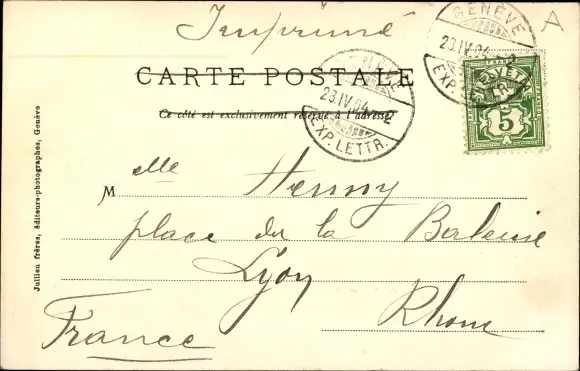 Imprimé
A
GENÈVE
23.IV.04
EXP. LETTR.
HELVETIA
5
CARTE POSTALE
23.IV.04
EXP. LETTR.
Ce côté est exclusivement réservé à l'adresse
Melle Henny
place du la
Lyon
Rhone
France
Jullien frères, éditeurs-photographes, Genève